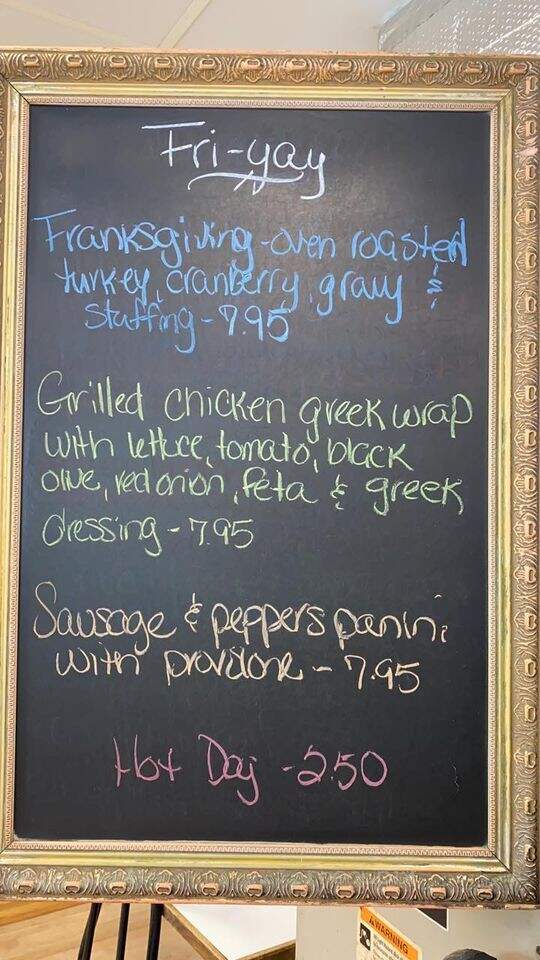 Fri-yay
Franksgiving - oven roasted
turkey, cranberry, gravy &
stuffing - 7.95
Grilled chicken greek wrap
with lettuce, tomato, black
olive, red onion, feta & greek
dressing - 7.95
Sausage & peppers panini
with provolone - 7.95
Hot Dog - 2.50
WARNING